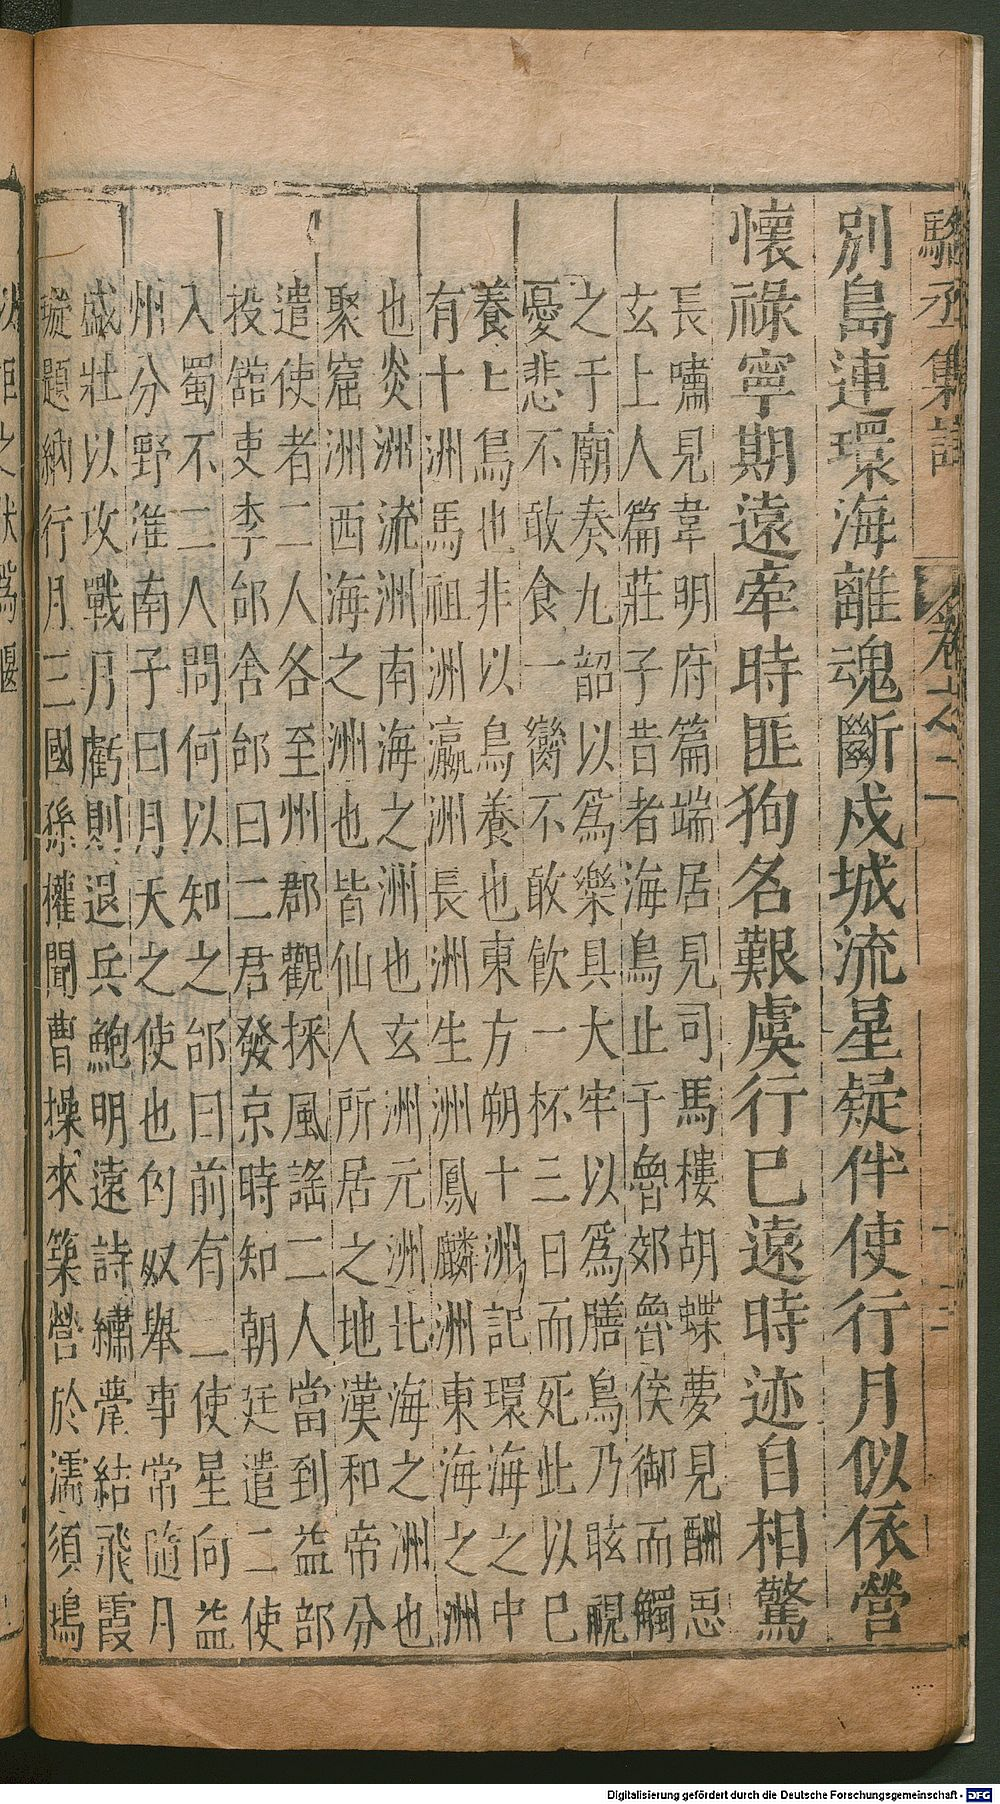 駱丞集註
卷之二
別島連環海離魂斷戍城流星疑伴使行月似依營
懷祿寧期遠牽時匪狥名艱虞行已遠時迹自相驚
長嘯見韋明府篇端居見司馬樓胡蝶夢見酬思
玄上人篇莊子昔者海鳥止于魯郊魯侯御而觴
之于廟奏九韶以爲樂具大牢以爲膳鳥乃眩視
憂悲不敢食一臠不敢飲一杯三日而死此以已
養養鳥也非以鳥養也東方朔十洲記環海之中
有十洲馬祖洲瀛洲長洲生洲鳳麟洲東海之洲
也炎洲流洲南海之洲也玄洲元洲北海之洲也
聚窟洲西海之洲也皆仙人所居之地漢和帝分
遣使者二人各至州郡觀採風謠二人當到益部
投舘吏李郃舍郃曰二君發京時知朝廷遣二使
入蜀不二人問何以知之郃曰前有二使星向益
州分野淮南子曰月天之使也匈奴舉事常隨月
盛壯以攻戰乃虧則退兵鮑明遠詩繡甍結飛霞
璇題納行月三國孫權聞曹操來築營於濡須塢
以拒之狀爲偃
Digitalisierung gefördert durch die Deutsche Forschungsgemeinschaft - DFG